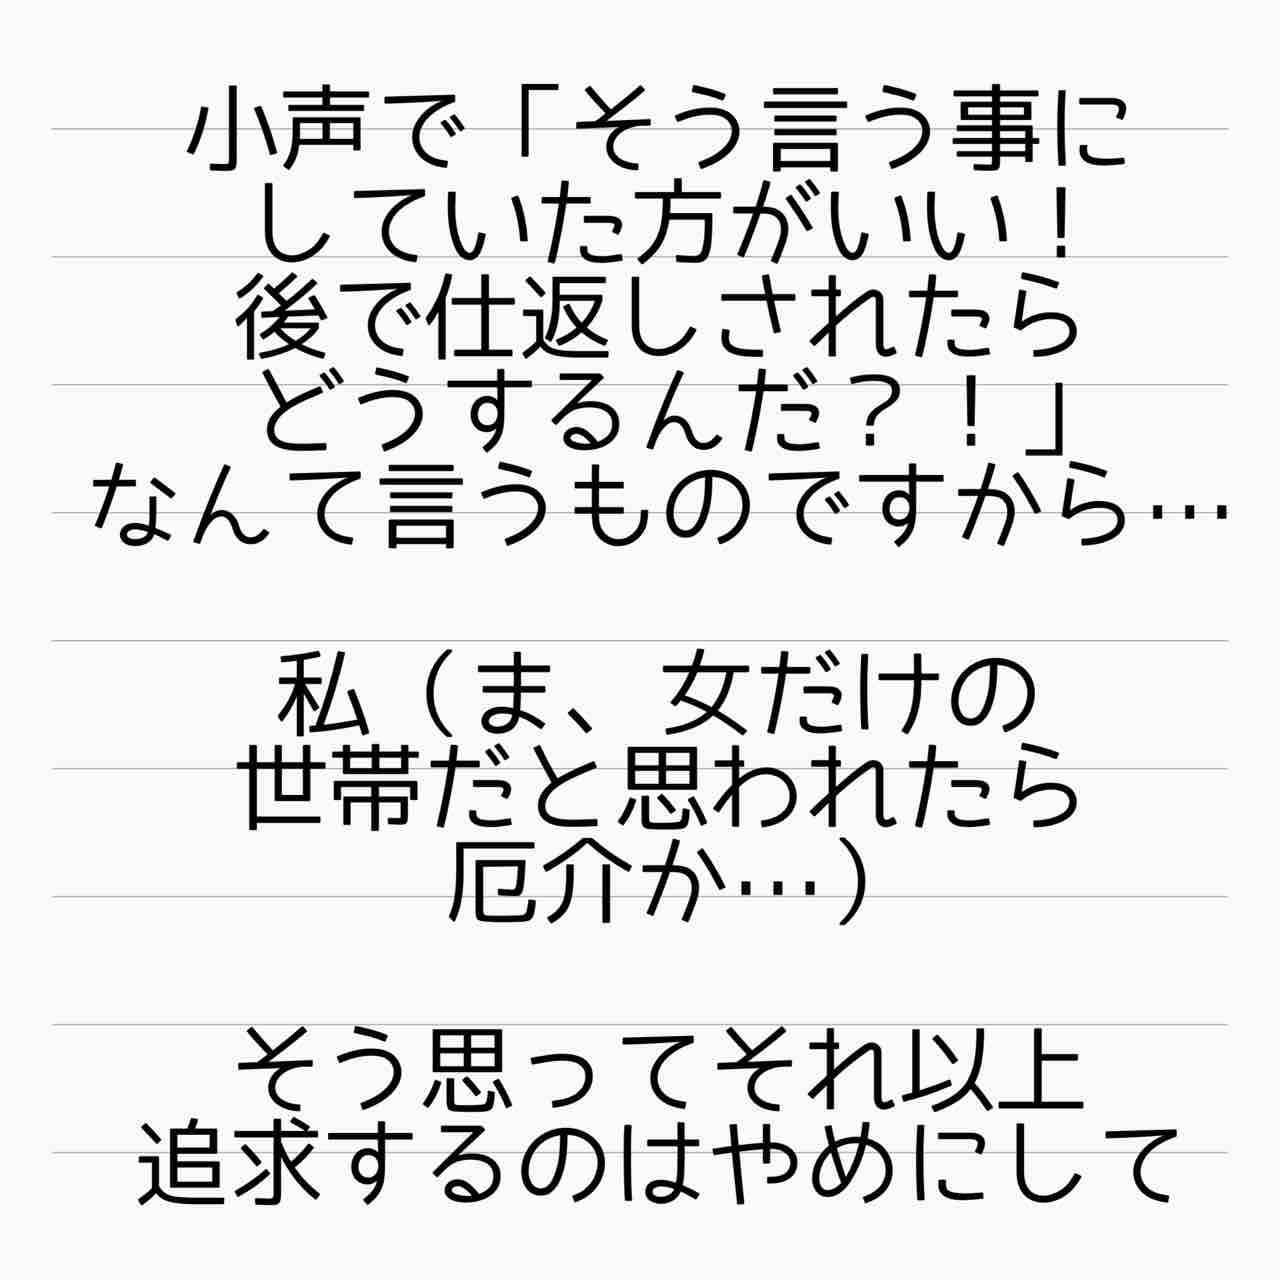 小声で「そう言う事に
していた方がいい！
後で仕返しされたら
どうするんだ？！」
なんて言うものですから…
私（ま、女だけの
世帯だと思われたら
厄介か…）
そう思ってそれ以上
追求するのはやめにして